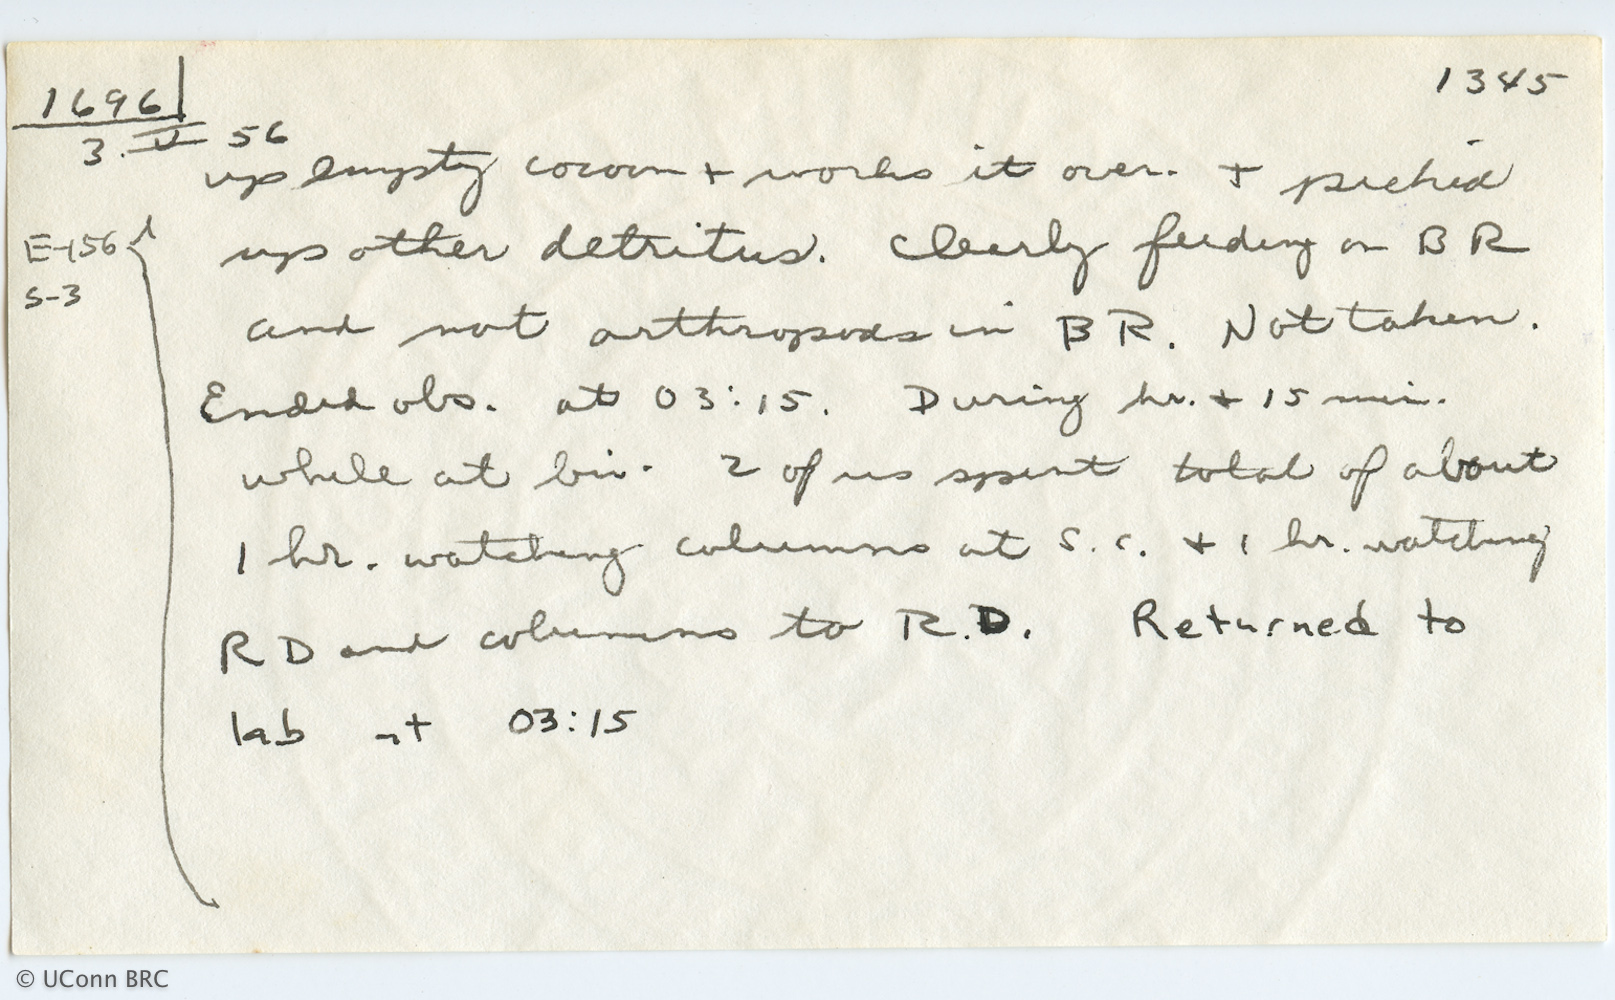 1696
1345
3.II 56
up empty cocoon + works it over. + picked
E-156
up other detritus. Clearly feeding on BR
S-3
and not arthropods in BR. Not taken.
Ended obs. at 03:15. During hr. + 15 min.
while at biv. 2 of us spent total of about
1 hr. watching columns at S.C. + 1 hr. watching
RD and columns to R.D. Returned to
lab at 03:15
© UConn BRC